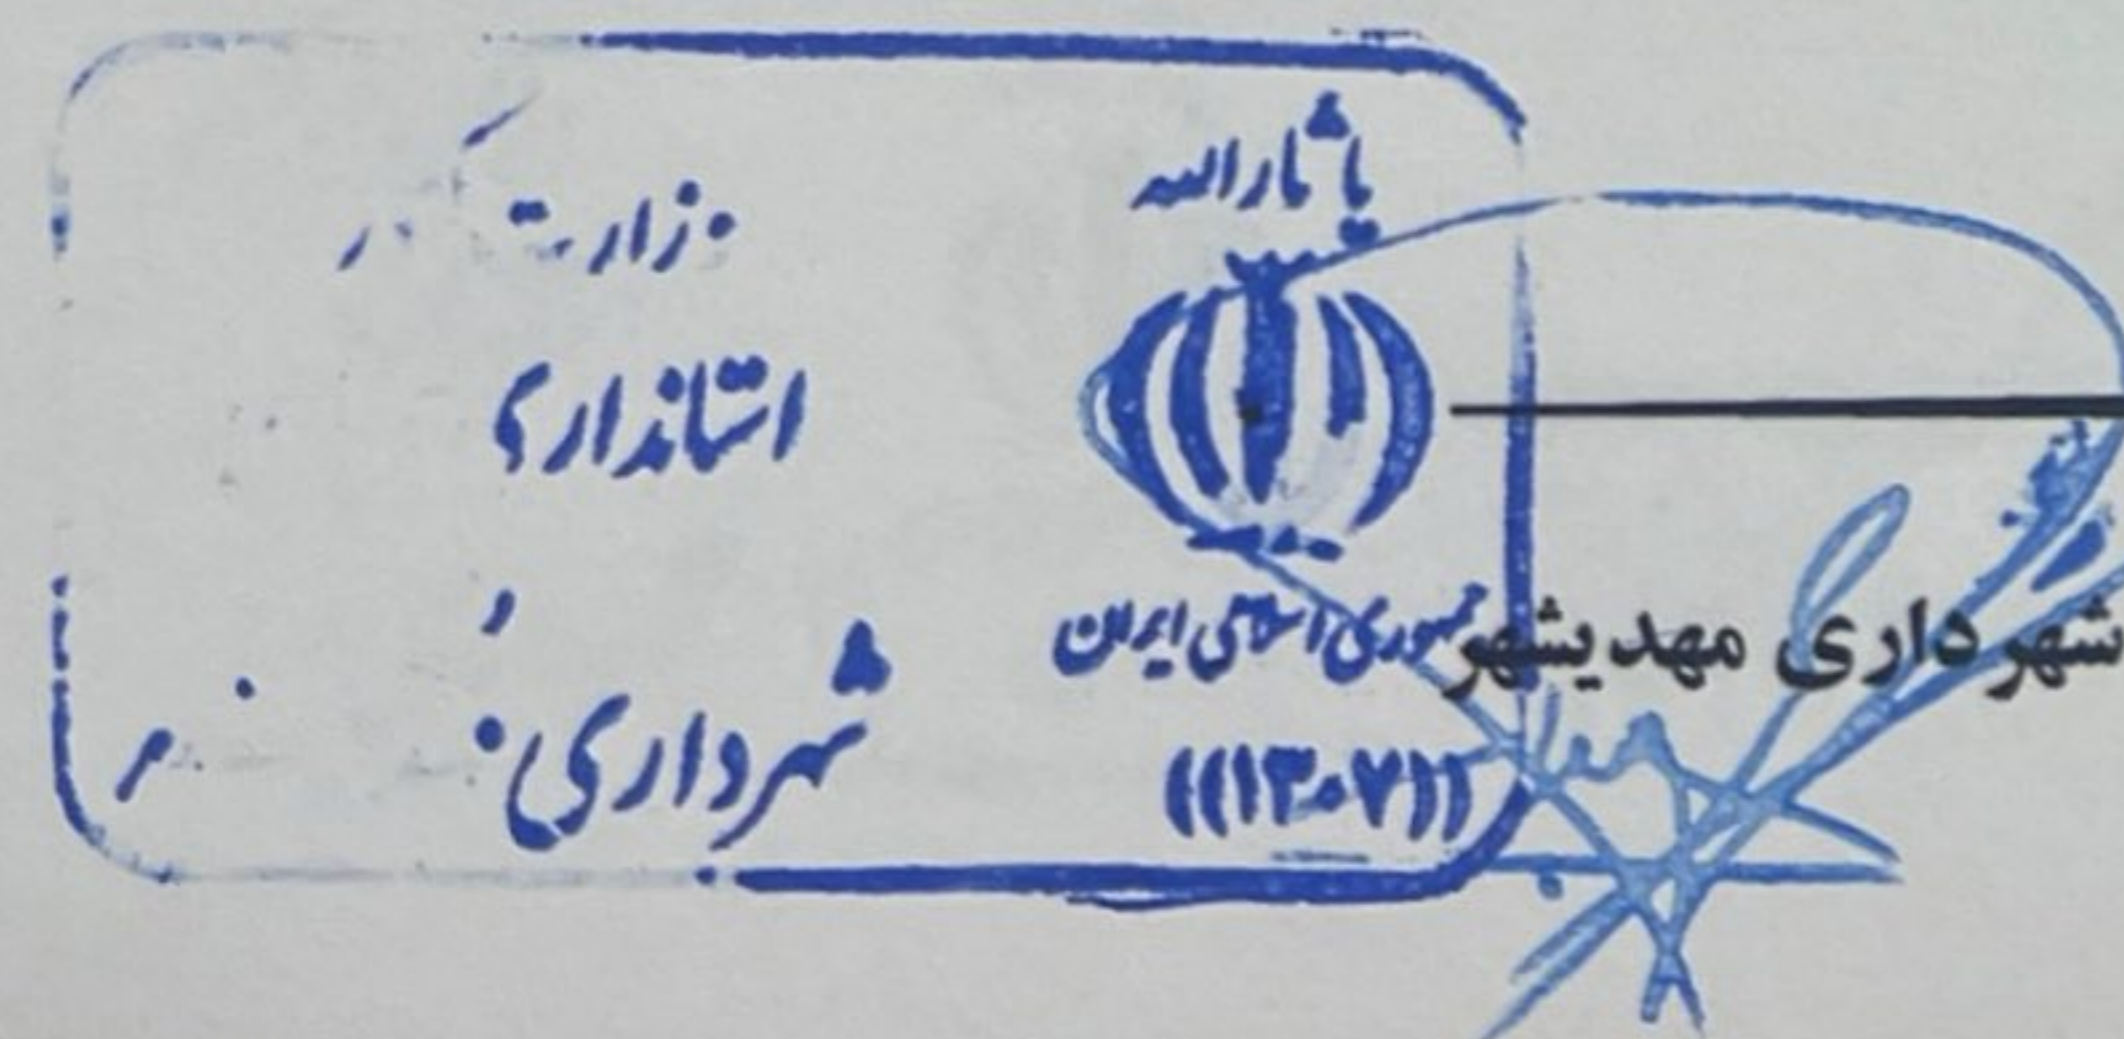 یا ثارالله
جمهوری اسلامی ایران
((۱۳۰۷))
وزارت
استانداری
شهرداری
شهرداری مهدیشهر